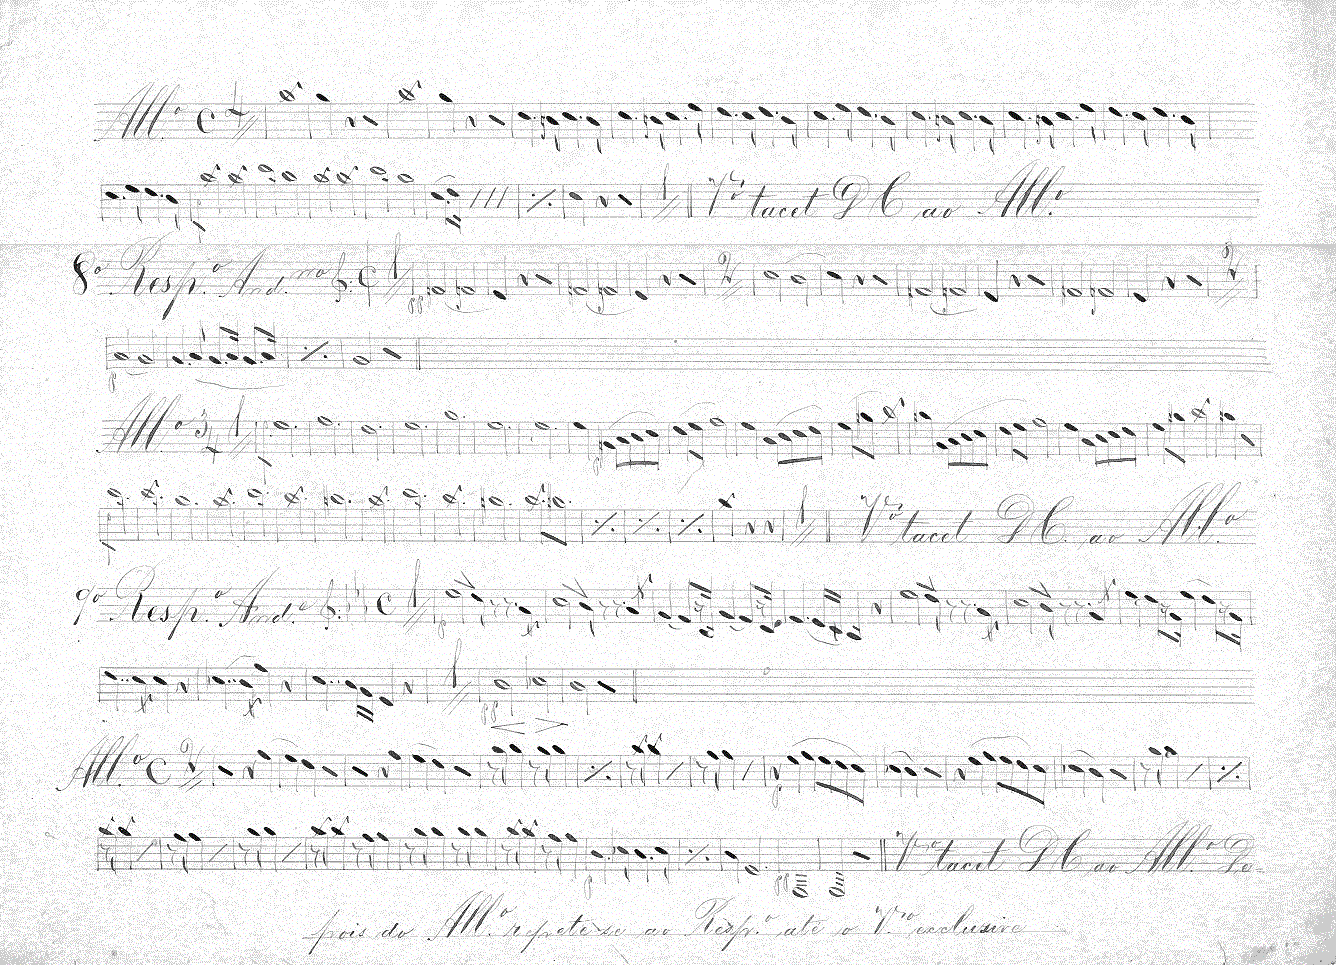 All.º C 4
Vº tacet D.C. ao All.º
8º Resp.º And.no C 1
2 2
pp
p
All.º 3/4 1
p
1 Vº tacet D.C. ao All.º
9º Resp.º And.e C 1
p
1
pp
All.º C 2
p
p pp Vº tacet D.C. ao All.º De=
pois do All.º repete-se ao Resp.º até o V.º exclusive